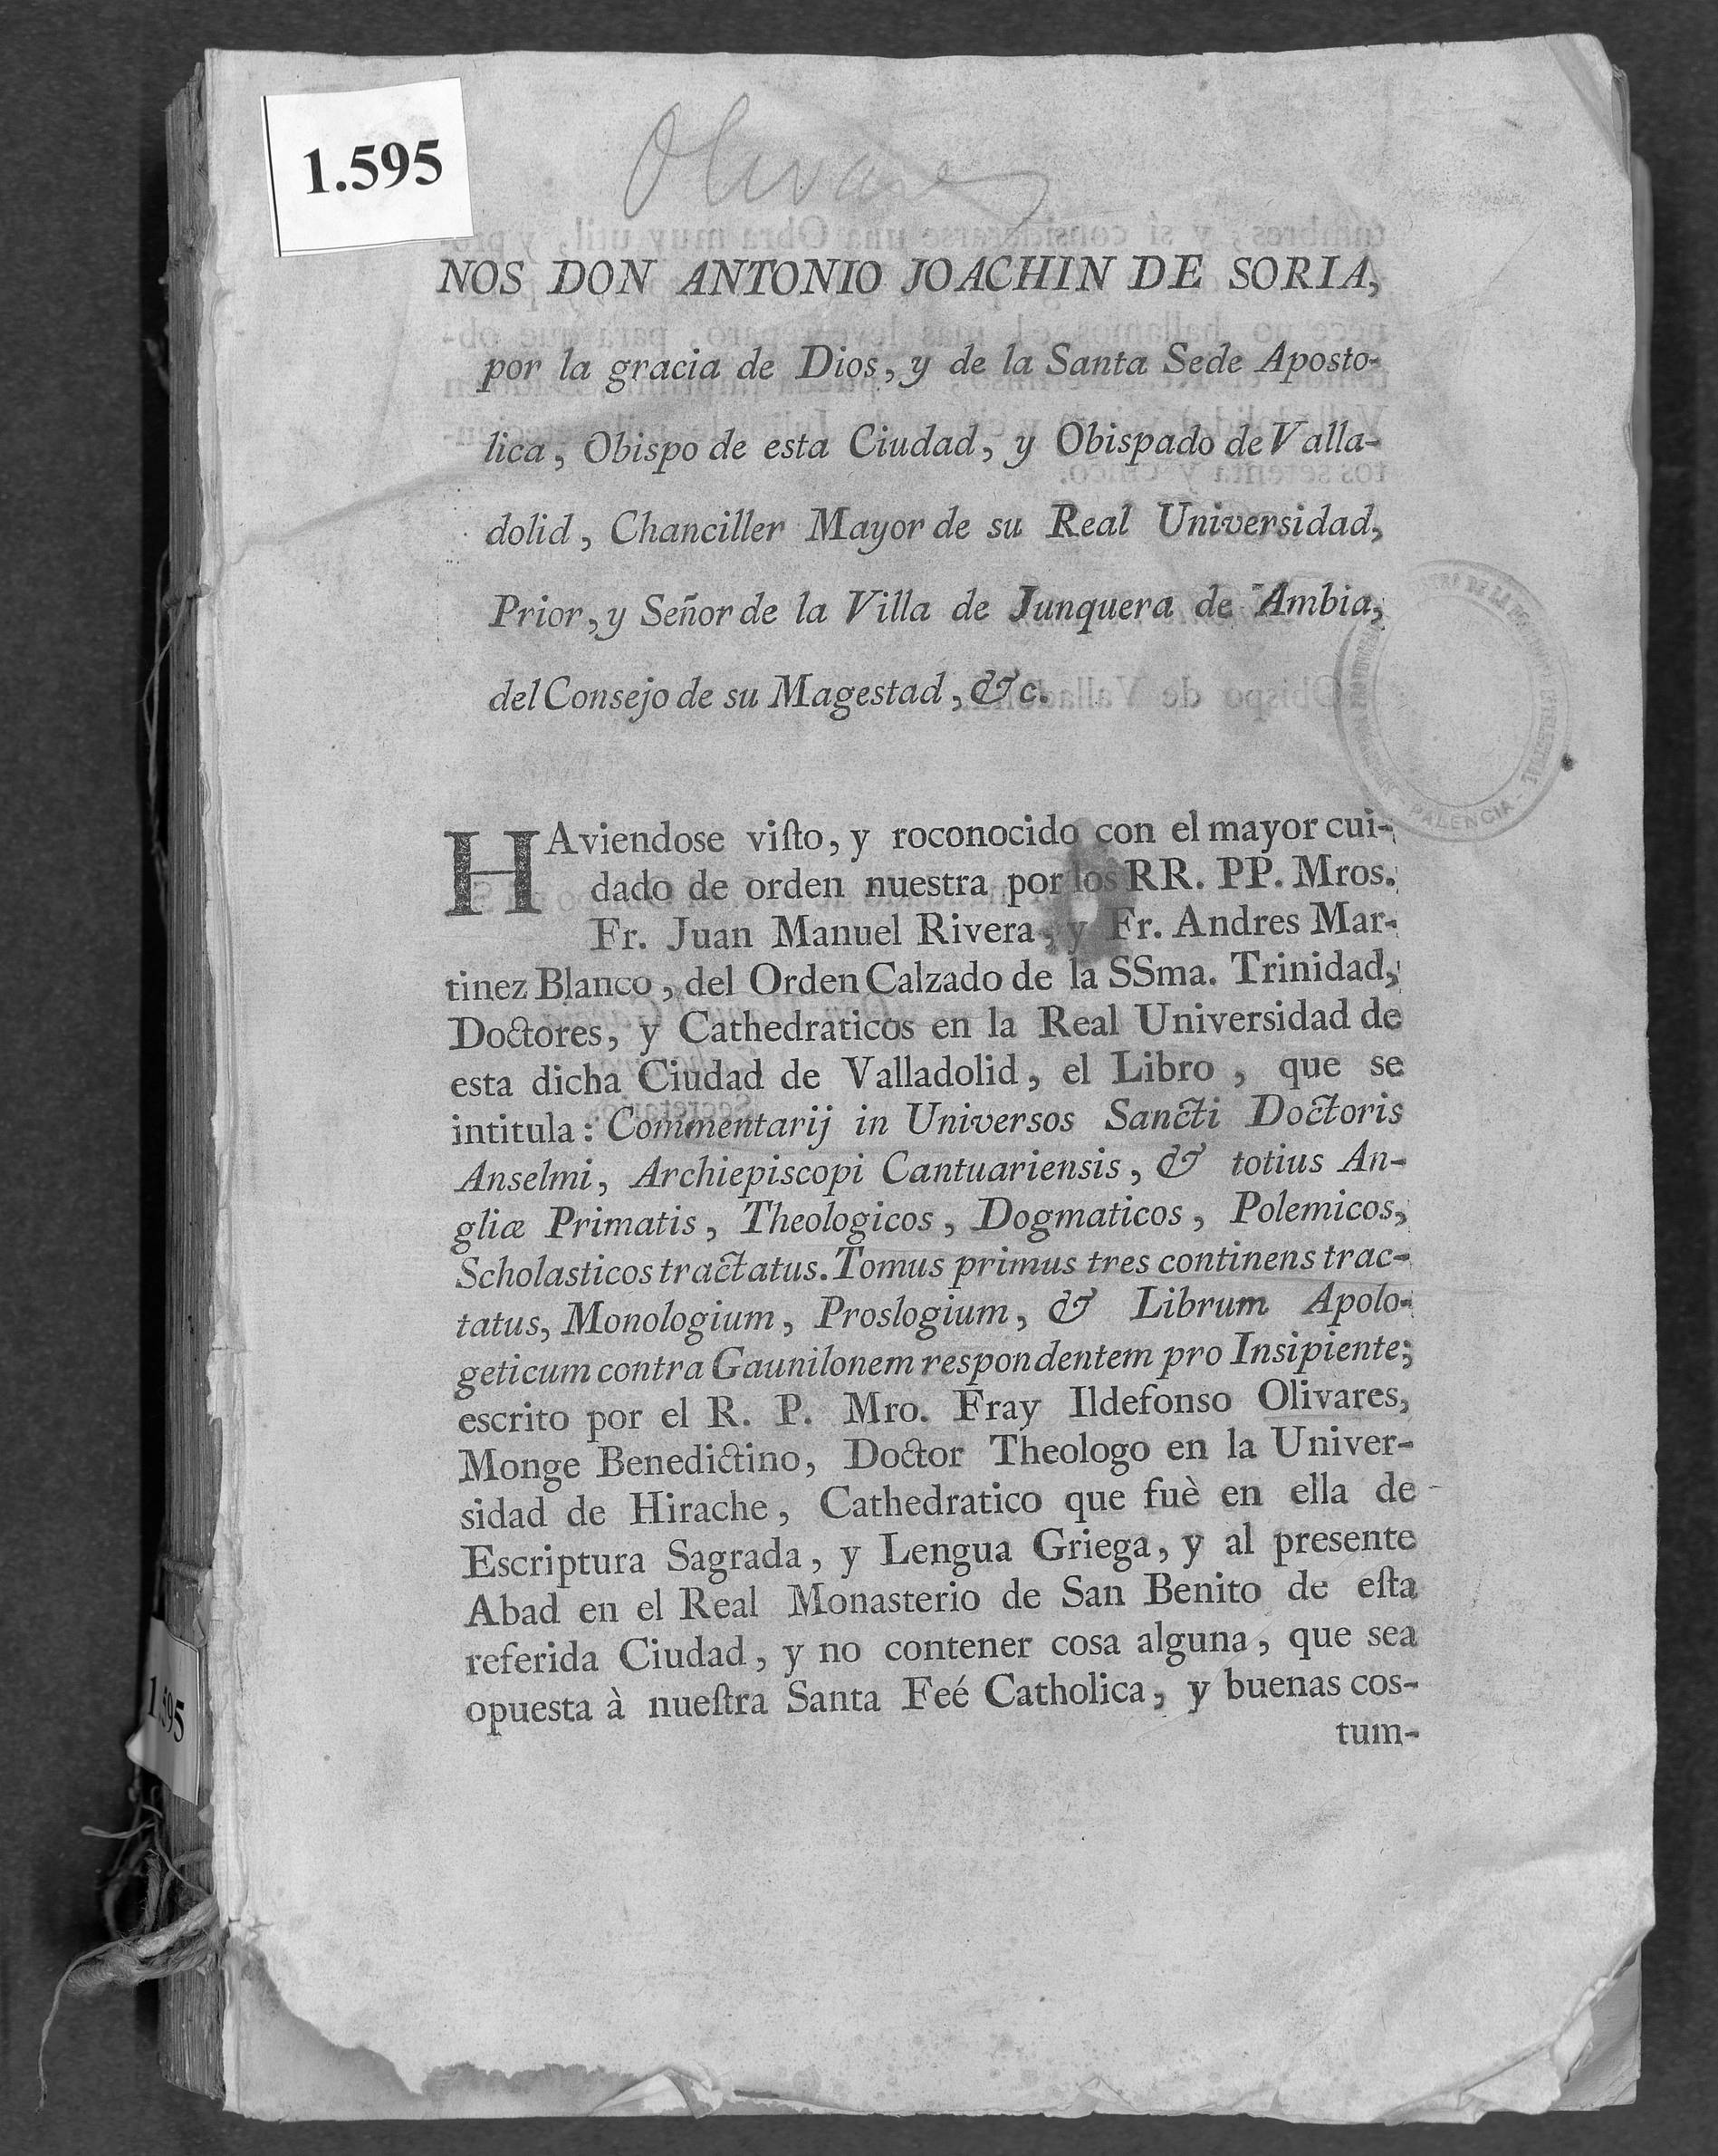 1.595
Olivares
NOS DON ANTONIO JOACHIN DE SORIA,
por la gracia de Dios, y de la Santa Sede Aposto-
lica, Obispo de esta Ciudad, y Obispado de Valla-
dolid, Chanciller Mayor de su Real Universidad,
Prior, y Señor de la Villa de Junquera de Ambia,
del Consejo de su Magestad, &c.
HAviendose visto, y roconocido con el mayor cui-
dado de orden nuestra por los RR. PP. Mros.
Fr. Juan Manuel Rivera, y Fr. Andres Mar-
tinez Blanco, del Orden Calzado de la SSma. Trinidad,
Doctores, y Cathedraticos en la Real Universidad de
esta dicha Ciudad de Valladolid, el Libro, que se
intitula: Commentarij in Universos Sancti Doctoris
Anselmi, Archiepiscopi Cantuariensis, & totius An-
gliæ Primatis, Theologicos, Dogmaticos, Polemicos,
Scholasticos tractatus. Tomus primus tres continens trac-
tatus, Monologium, Proslogium, & Librum Apolo-
geticum contra Gaunilonem respondentem pro Insipiente;
escrito por el R. P. Mro. Fray Ildefonso Olivares,
Monge Benedictino, Doctor Theologo en la Univer-
sidad de Hirache, Cathedratico que fuè en ella de
Escriptura Sagrada, y Lengua Griega, y al presente
Abad en el Real Monasterio de San Benito de esta
referida Ciudad, y no contener cosa alguna, que sea
opuesta à nuestra Santa Feé Catholica, y buenas cos-
tum-
PALENCIA
1.595